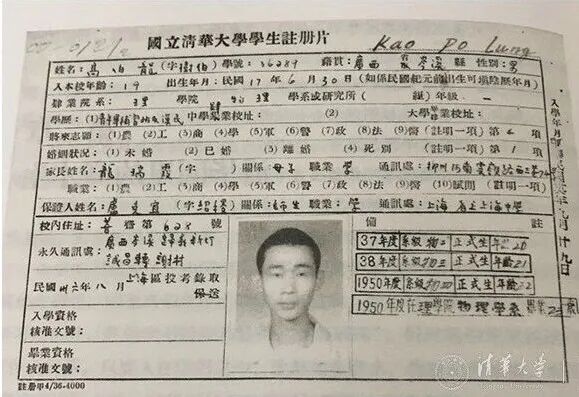 國立清華大學學生註册片 Kao Po Lung
姓名:高伯龍(字樹伯)學號:36289 籍貫:廣西省岑溪縣 性別:男
入本校年齡:19 出生年月:民國17年6月30日(如係民國紀元前出生可填陰歷年月)
肄業院系:理 學院 物理 學系或研究所 (組)年級:
學歷:(1) 中學畢業校址: (2) 大學畢業校址:
將來志願:(1)農(2)工(3)商(4)學(5)軍(6)警(7)政(8)法(9)醫(註明一項)第4項
婚姻狀况:(1)未婚 (2)已婚 (3)離婚 (4)死别 (註明一項)第1項
家長姓名:龍瑞霞(字 )關係:母子 職業:學 通訊處:柳州
職業:(1)農(2)工(3)商(4)學(5)軍(6)警(7)政(8)法(9)醫(10)賦閒(註明一項)
保證人姓名:盧 (字 )關係:師生 職業:學 通訊處:上海省立上海中學
校內住址:善齋628號 備 註
永久通訊處:廣西岑溪歸義新圩
誠昌轉謝村
民國卅六年八月 上海區投考錄取
保送
入學資格
核准文號:
畢業資格
核准文號:
37年度 系級物二 正式生 年齡20
38年度 系級物三 正式生 年齡21
1950年度 系級物四 正式生 年齡22
1950年度在理學院物理學系畢業
入學年月
註册甲4/36-4000
清華大學
Tsinghua University